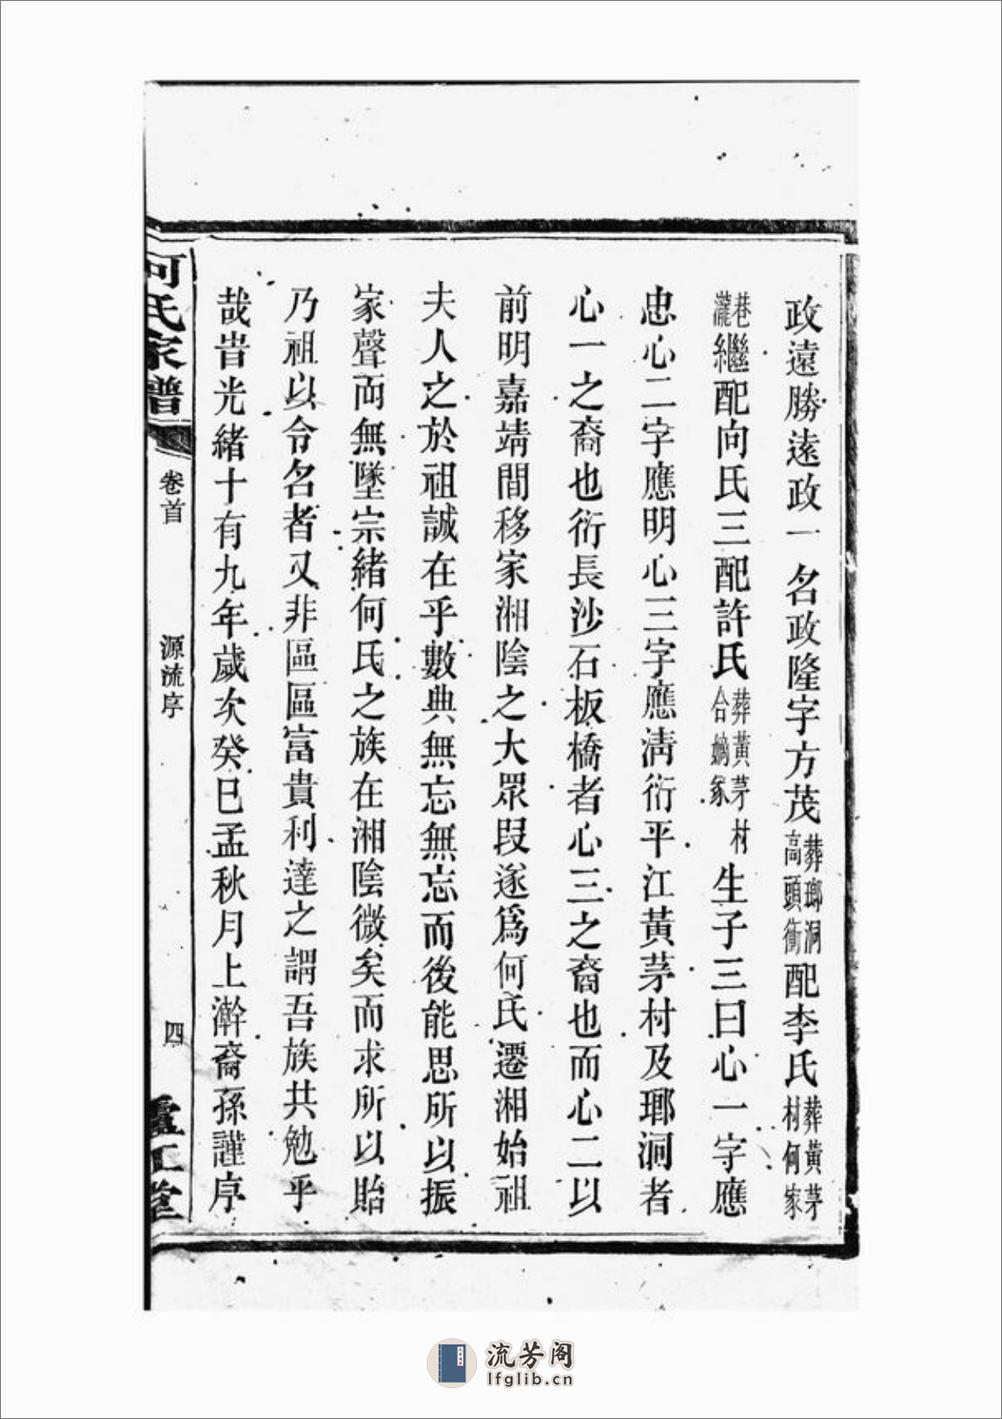 政遠勝遠政一名政隆字方茂葬瑯洞高頭衝配李氏葬黃茅村何家
巷瀧繼配向氏三配許氏葬黃茅村合嫡冢生子三曰心一字應
忠心二字應明心三字應清衍平江黃茅村及瑯洞者
心一之裔也衍長沙石板橋者心三之裔也而心二以
前明嘉靖間移家湘陰之大眾段遂爲何氏遷湘始祖
夫人之於祖誠在乎數典無忘無忘而後能思所以振
家聲而無墜宗緒何氏之族在湘陰微矣而求所以貽
乃祖以令名者又非區區富貴利達之謂吾族共勉乎
哉旹光緒十有九年歲次癸巳孟秋月上澣裔孫謹序
何氏家譜
卷首
源流序
四
廬江堂
流芳阁
lfglib.cn